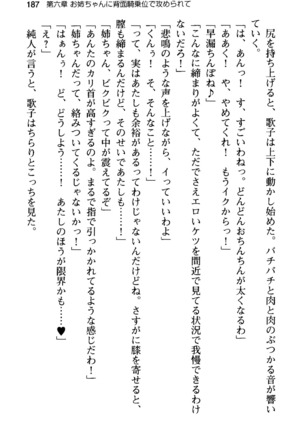 187 第六章 お姉ちゃんに背面騎乗位で攻められて
尻を持ち上げると、歌子は上下に動かし始めた。パチパチと肉と肉のぶつかる音が響い
「は、あんっ！　す、すごいわねっ。どんどんおちんちんが太くなるわ」
「あ、ああくっ、や、やめてくれ！　もうイクからっ！」
「早漏ちんぽねぇ」
「こんなに締まりがよくて、ただでさえエロいケツを間近で見てる状況で我慢できるわけ
ないだろ！」
「悲鳴のような声を上げながら、イっていいわよ」
「くっ！　そ、そんなこと……！」
「って、実はあたしも余裕があるってわけじゃないんだけどね。さすがに膝を寄せると、
膣も締まるんだけど、そのせいであたしも……！」
「姉ちゃん、ビクビクって中が震えてる」
「あんたのカリ首が高すぎるのよ。まるで指で引っかかれてるような感じだわ！」
「姉ちゃんだって、絡みついてくるじゃないかっ！」
「はぁんぅ！　ど、どうしよう……！　あたしのほうが限界かも……♥」
「え、これで！？」
純人が言うと、歌子はちらりとこっちを見た。